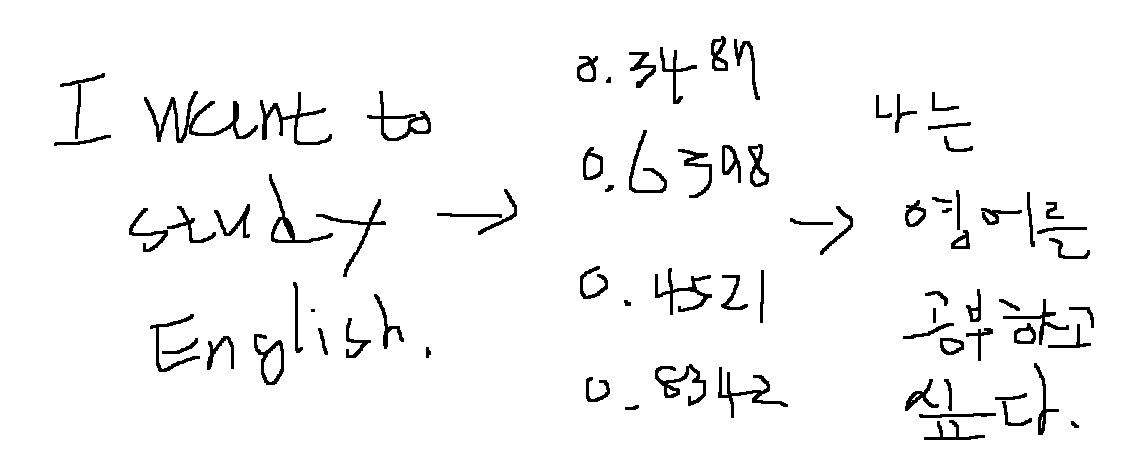 I want to
study
English.
→
0.3487
0.6398
0.4521
0.8342
→
나는
영어를
공부하고
싶다.